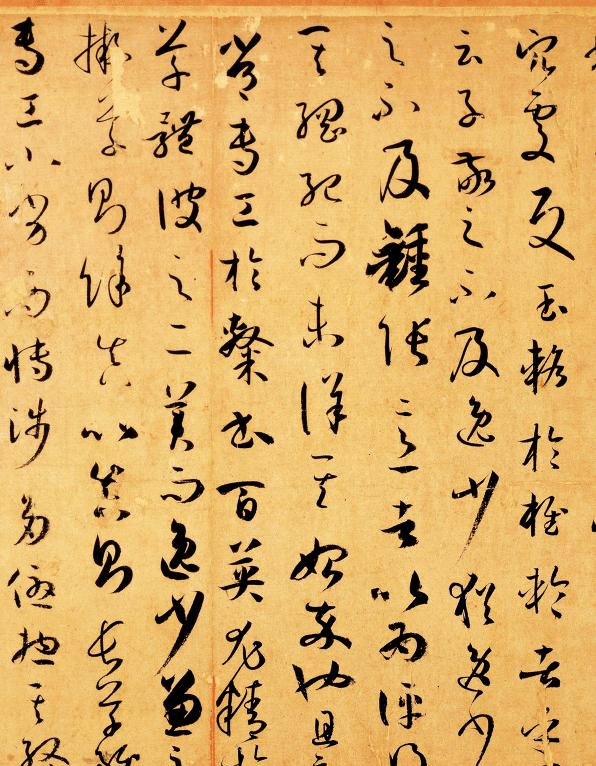 穴處反玉輅於椎輪者乎
云子敬之不及逸少猶逸少
之不及鍾張意者以為評得
其綱紀而未詳其始卒也且
常專工於隸書百英尤精於
草體彼之二美而逸少兼之
擬草則餘真比真則長草雖
專工小劣而博涉多優揔其終